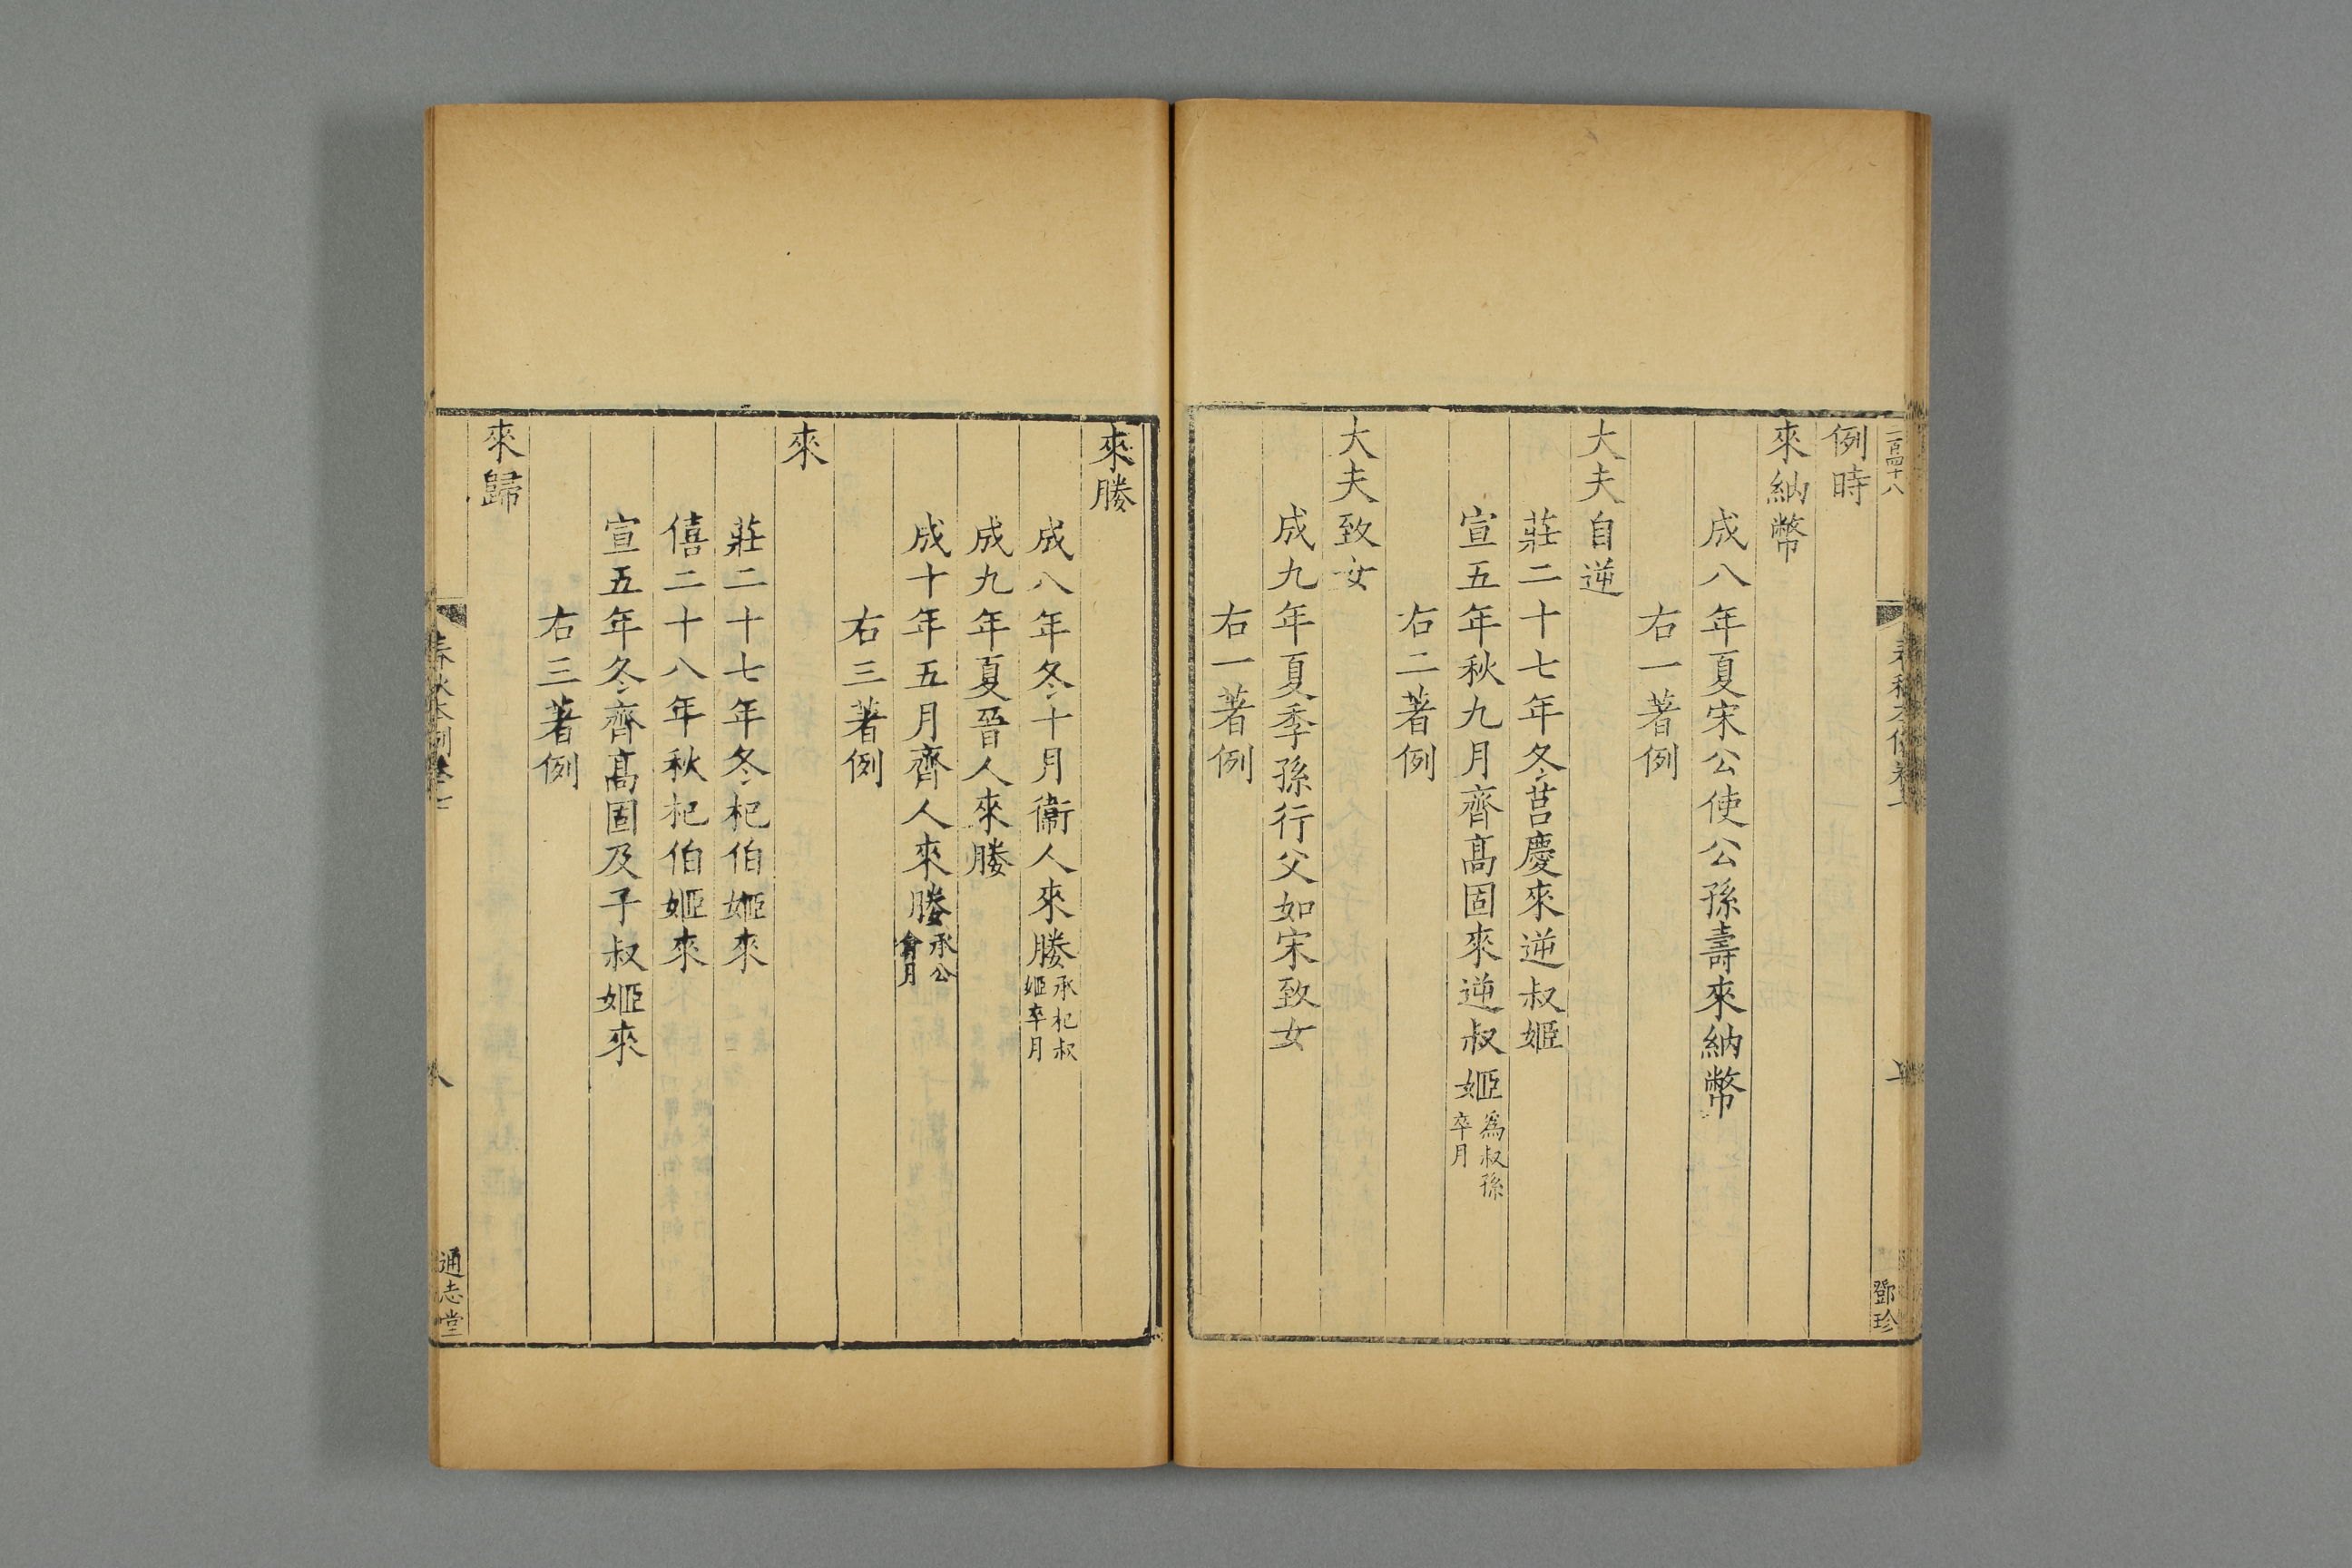 二百四十八
例時
來納幣
成八年夏宋公使公孫壽來納幣
右一著例
大夫自逆
莊二十七年冬莒慶來逆叔姬
宣五年秋九月齊髙固來逆叔姬為叔孫卒月
右二著例
大夫致女
成九年夏季孫行父如宋致女
右一著例
鄧珍
來媵
成八年冬十月衞人來媵承杞叔姬卒月
成九年夏晉人來媵
成十年五月齊人來媵承公會月
右三著例
來
莊二十七年冬杞伯姬來
僖二十八年秋杞伯姬來
宣五年冬齊髙固及子叔姬來
右三著例
來歸
春秋本例卷七
八
通志堂